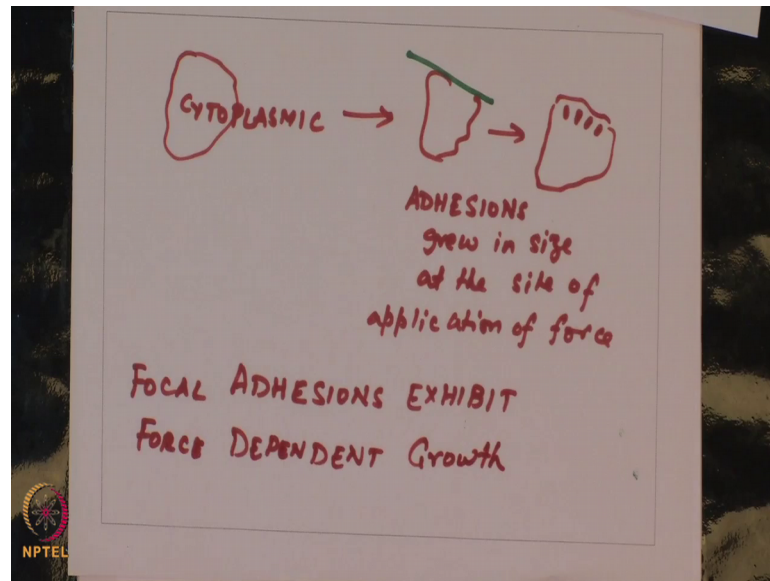 CYTOPLASMIC
ADHESIONS
grew in size
at the site of
application of force
FOCAL ADHESIONS EXHIBIT
FORCE DEPENDENT Growth
NPTEL